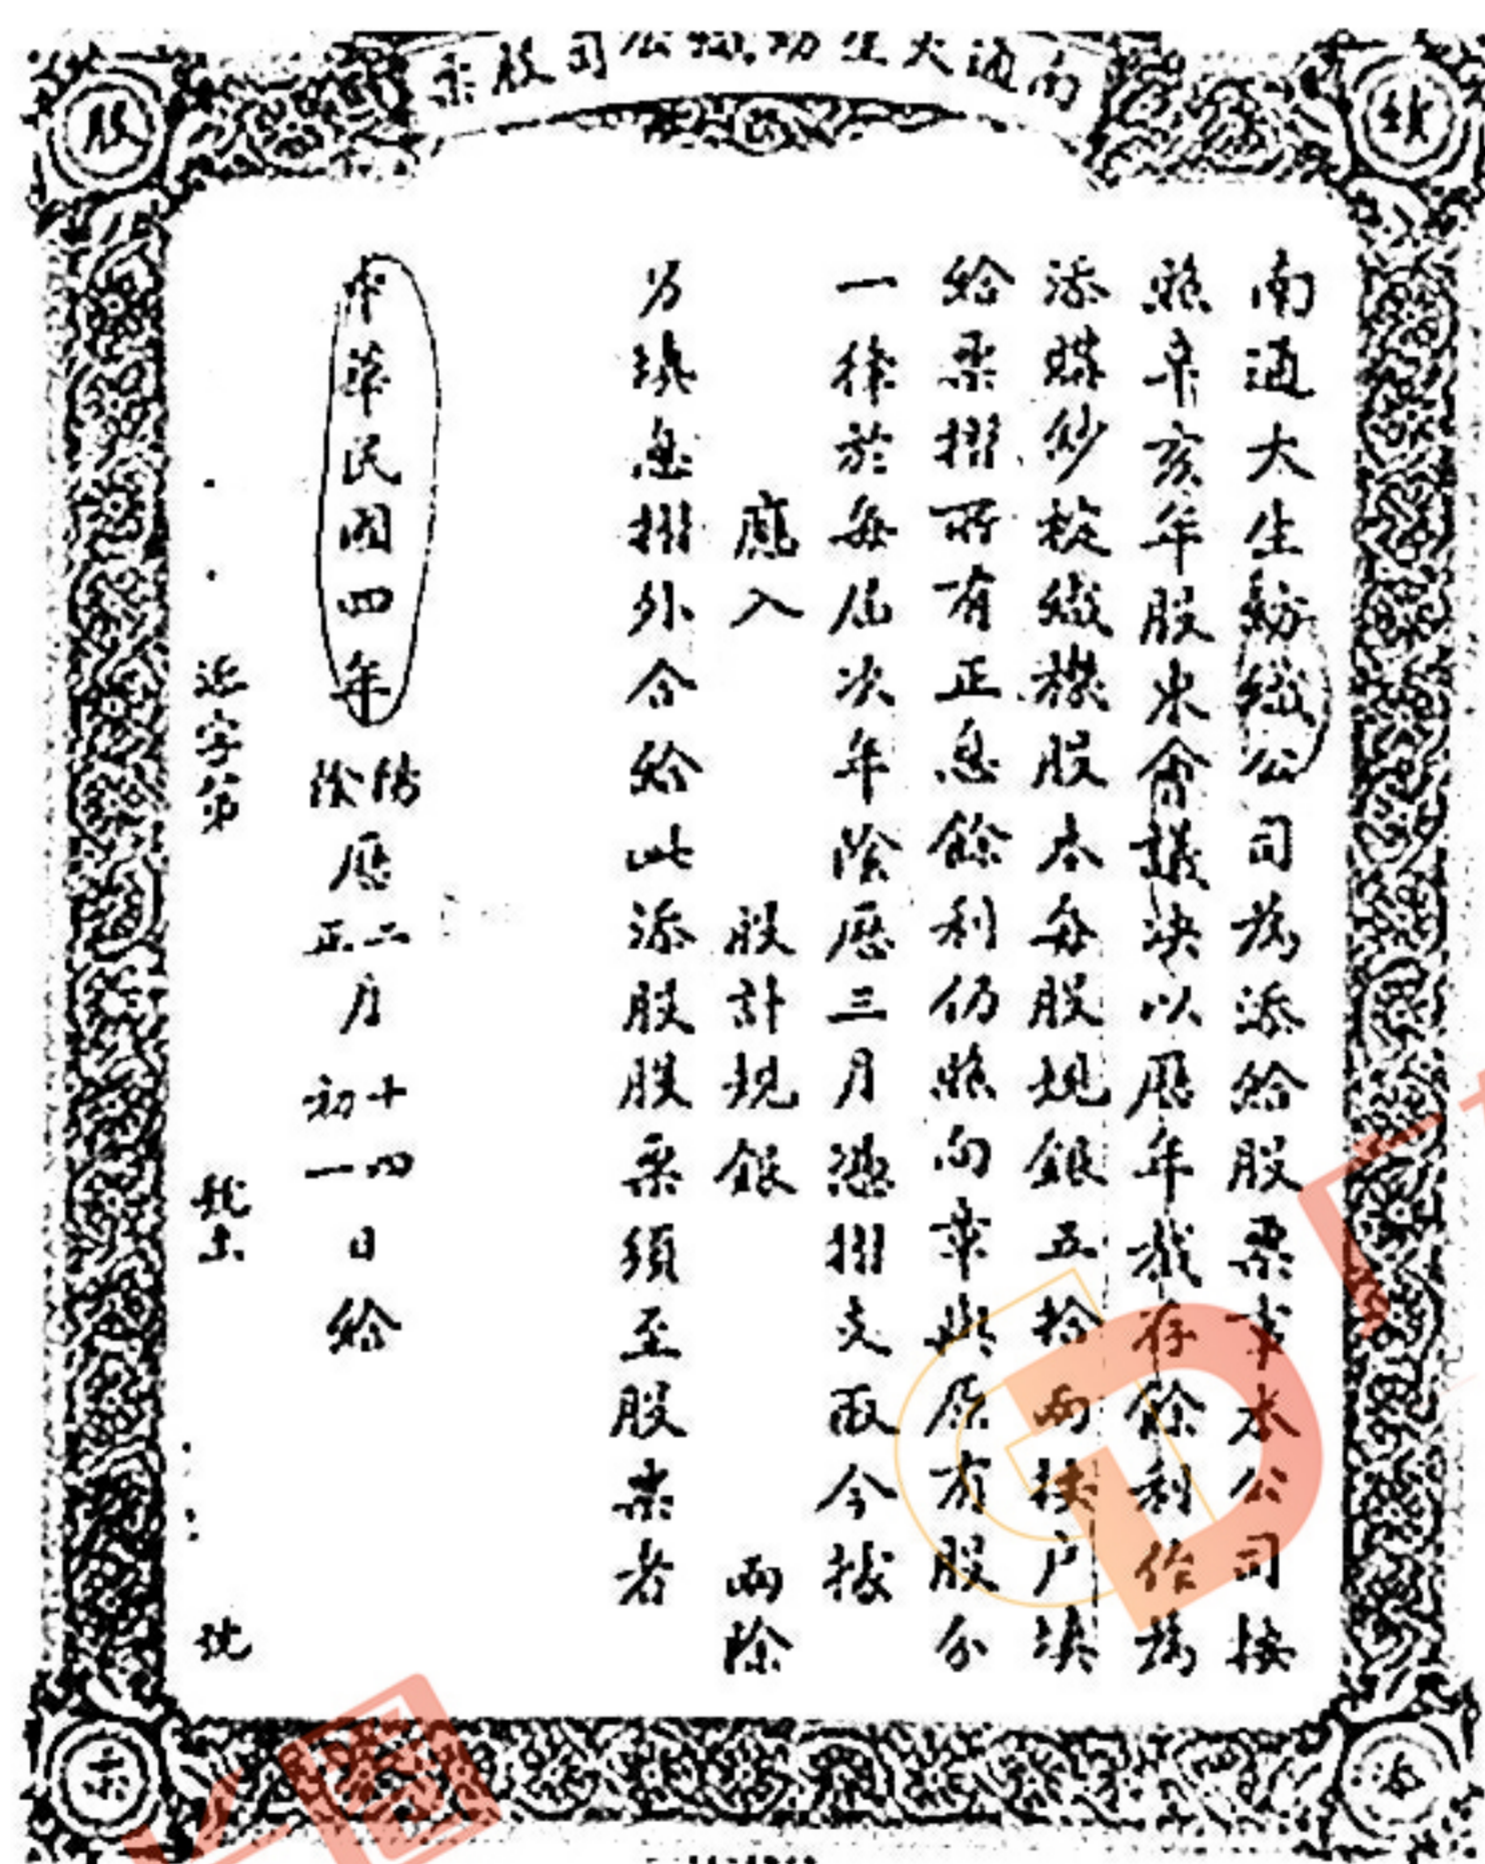 南通大生紡織公司股票
南通大生紡織公司為添給股票事本公司按
照辛亥年股東會議決以歷年截存餘利作為
添購紗錠織機股本每股規銀五拾兩挨戶填
給票摺所有正息餘利仍照向章與原有股分
一律於每屆次年陰歷三月憑摺支取今撥
應入 股計規銀 兩除
另填息摺外合給此添股股票須至股票者
中華民國四年陽陰歷二正月十初四一日給
添字第 號 號
股
票